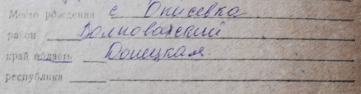 Место рождения с. Описевка
район Волновахский
край область Донецкая
республика